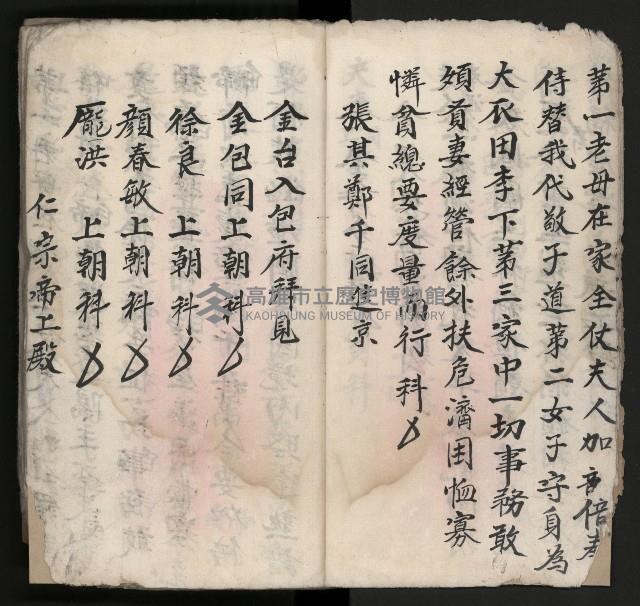 第一老母在家全仗夫人加意倍奉
侍替我代敬子道第二女子守身為
大瓜田李下第三家中一切事務敢
煩貢妻經管餘外扶危濟困恤寡
憐貧總要度量而行 科
張其鄭千同進京
金台入包府拜見
金包同上朝科
徐良 上朝科
顏春敏上朝科
龐洪 上朝科
仁宗帝上殿
高雄市立歷史博物館
KAOHSIUNG MUSEUM OF HISTORY